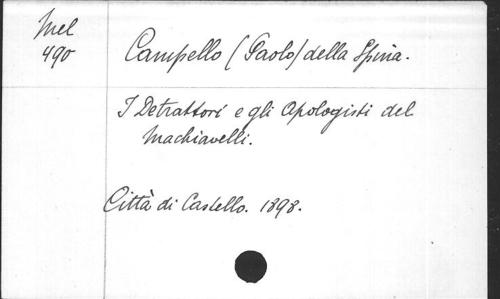 Mel
490
Campello (Paolo) della Spina.
I Detrattori e gli Apologisti del
Machiavelli.
Città di Castello. 1898.